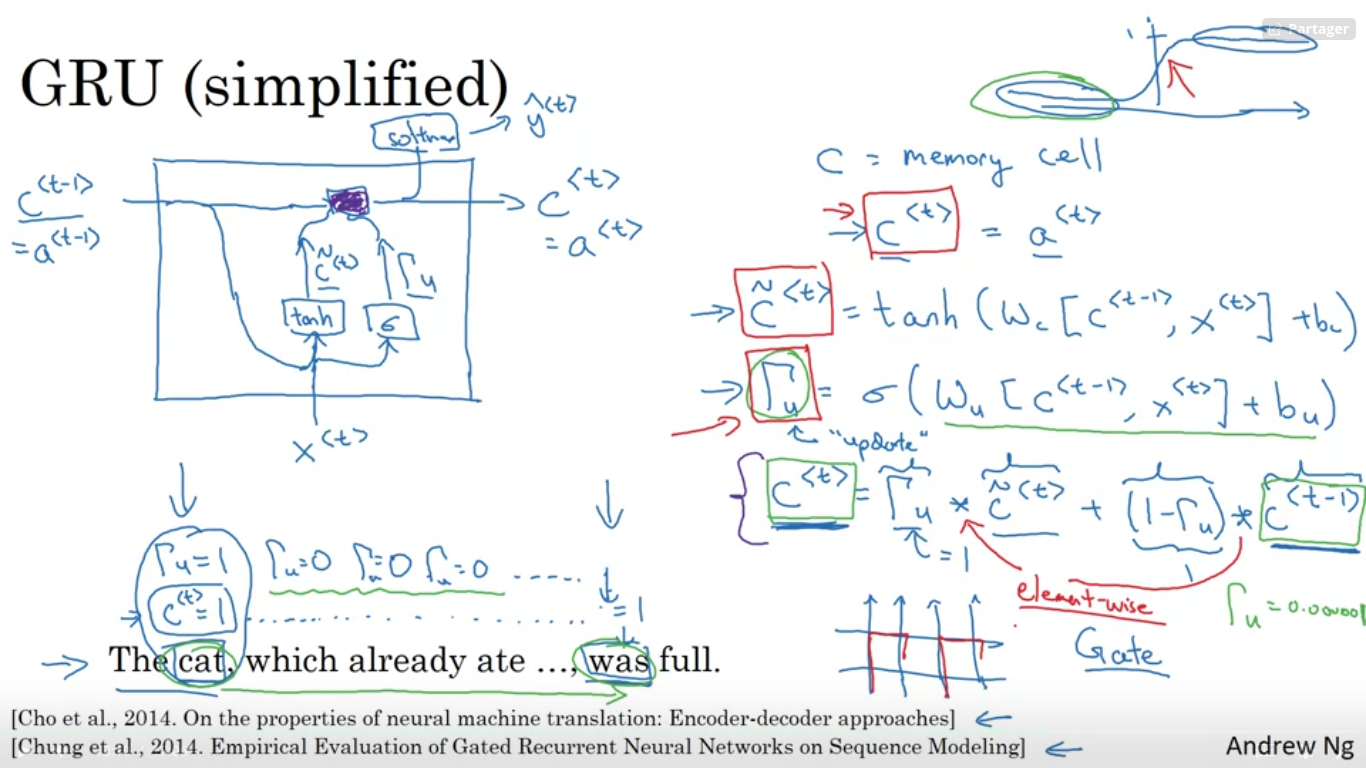 Partager
GRU (simplified)
softmax → ŷ<t>
c<t-1>
= a<t-1>
c<t>
= a<t>
c̃<t>
Γu
tanh
σ
x<t>
1
c = memory cell
→ c<t> = a<t>
→ c̃<t> = tanh (Wc [c<t-1>, x<t>] + bc)
→ Γu = σ (Wu [c<t-1>, x<t>] + bu)
"update"
c<t> = Γu * c̃<t> + (1-Γu) * c<t-1>
= 1
1
element-wise
Gate
Γu = 1 Γu=0 Γu=0 Γu=0 .....
c<t> = 1 ........ = 1
→ The cat, which already ate …, was full.
[Cho et al., 2014. On the properties of neural machine translation: Encoder-decoder approaches] ←
[Chung et al., 2014. Empirical Evaluation of Gated Recurrent Neural Networks on Sequence Modeling] ←
Andrew Ng